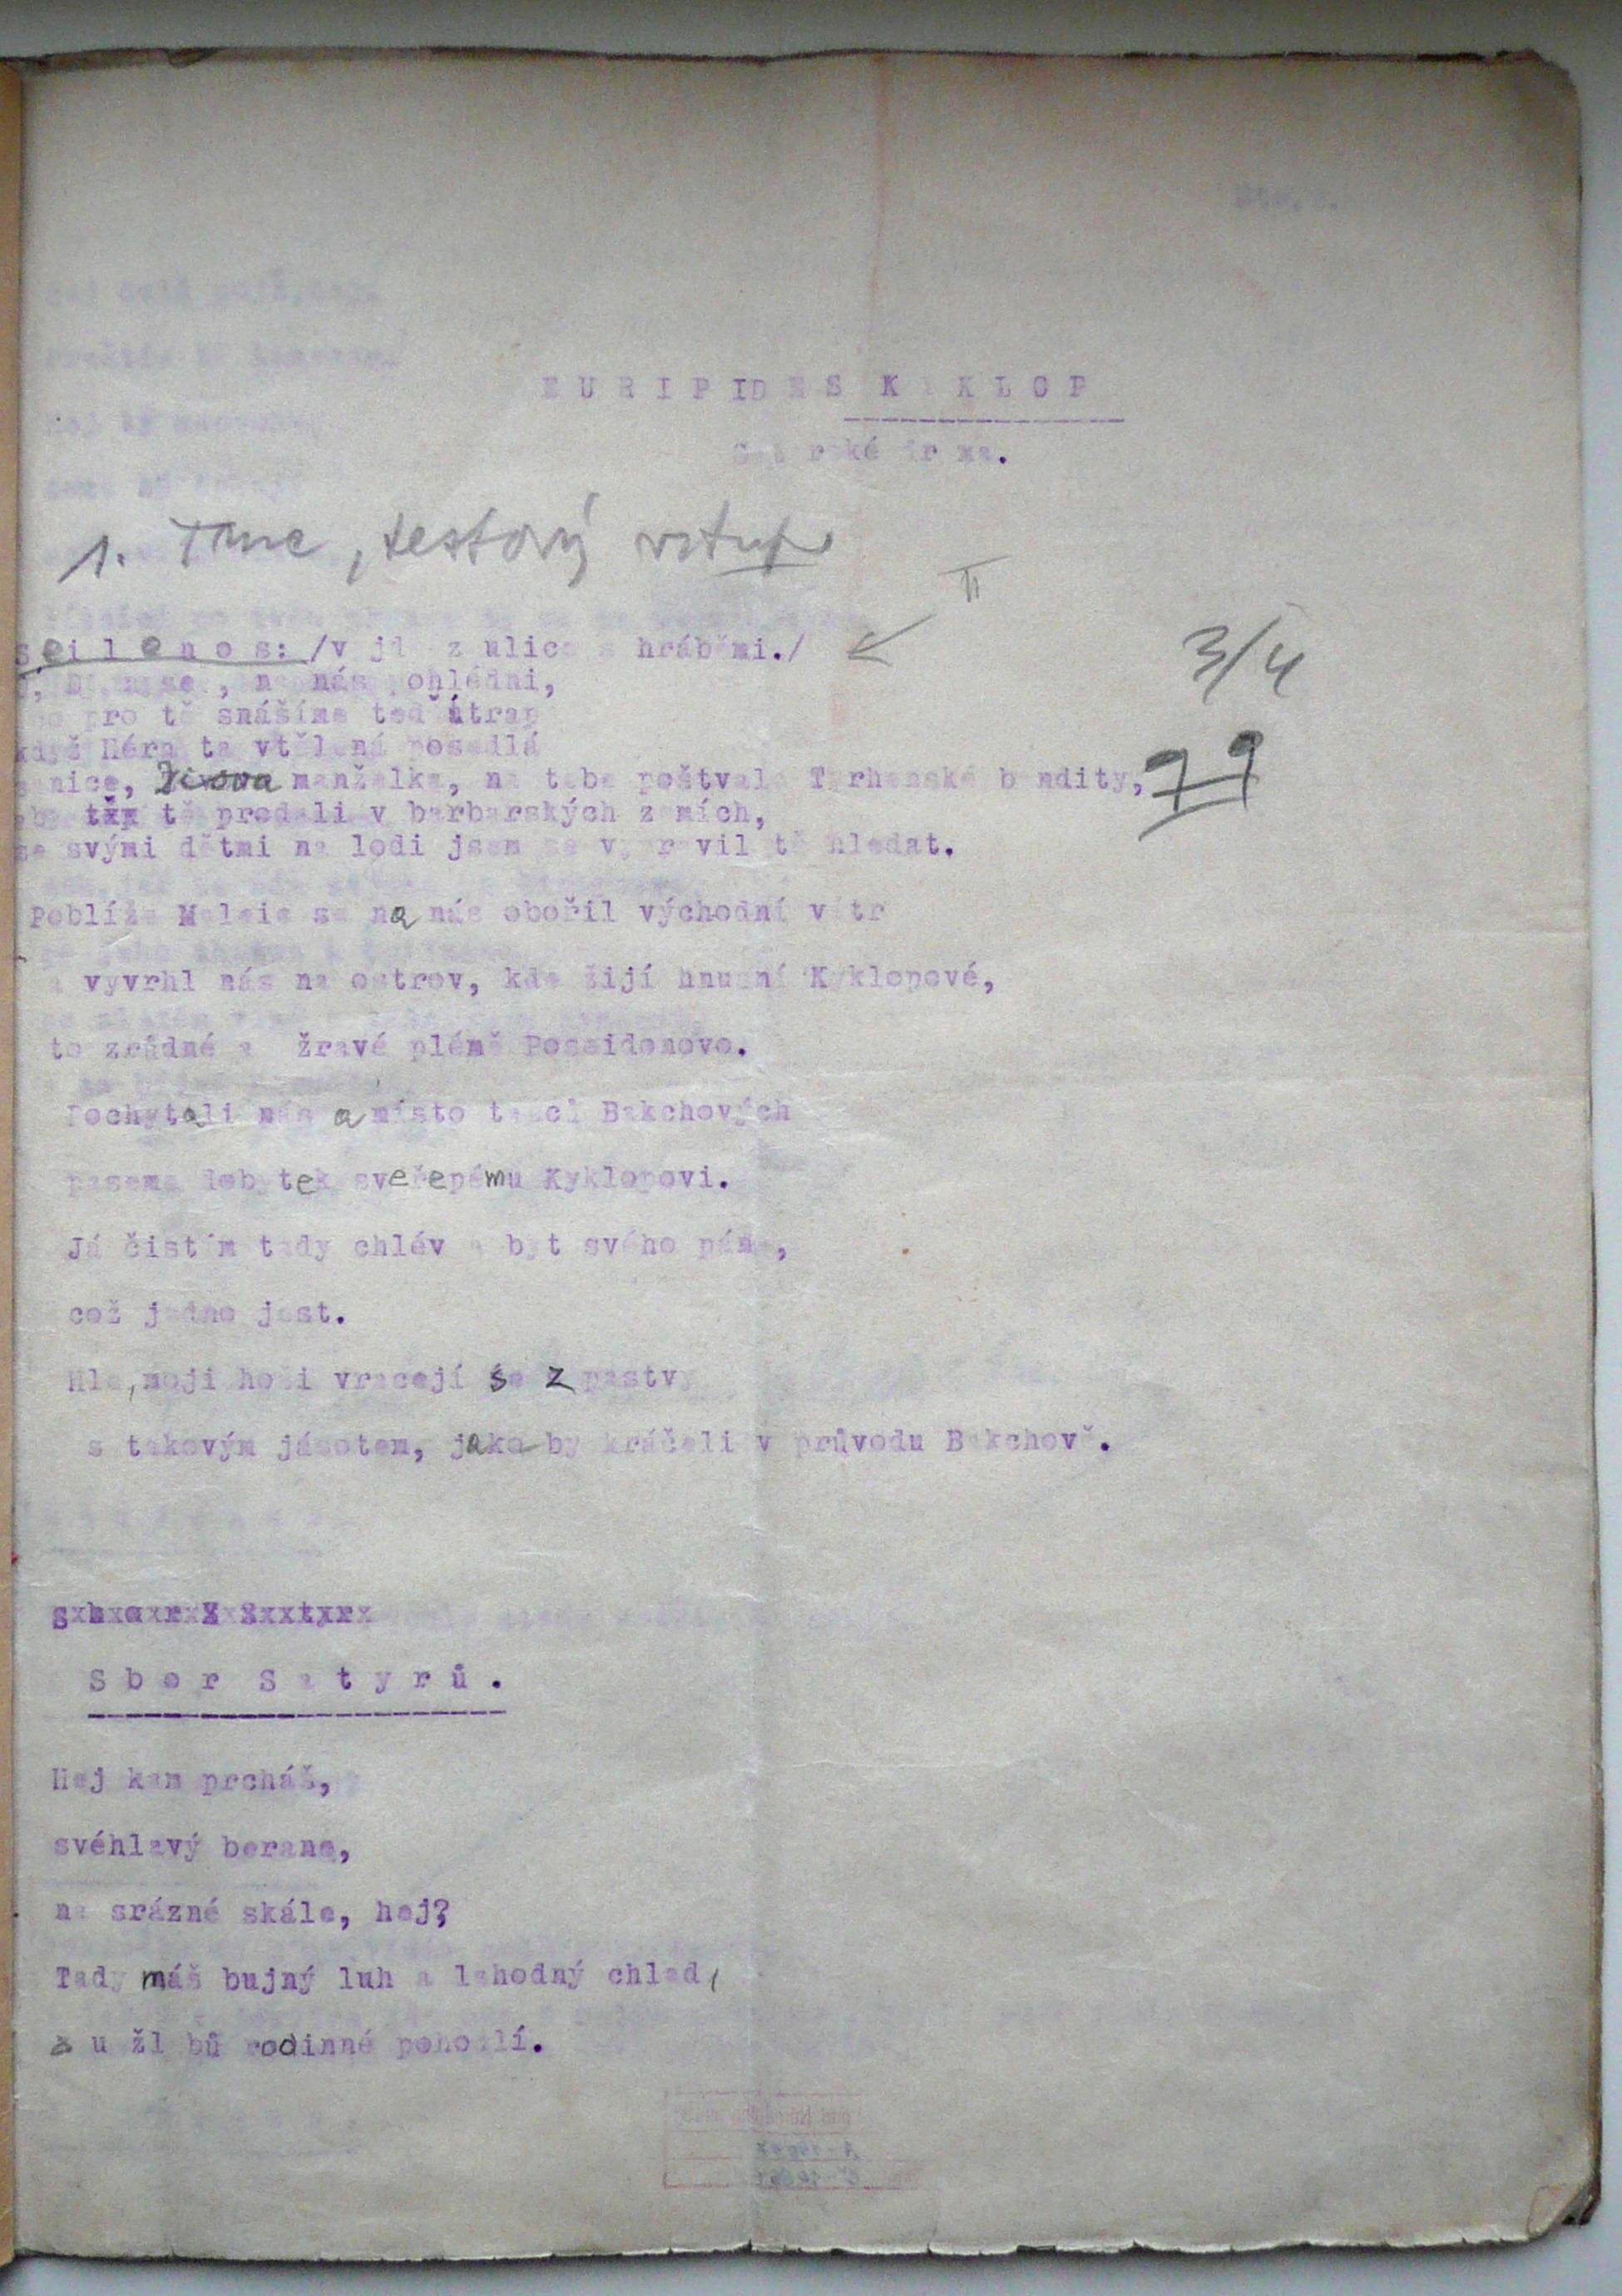 EURIPIDES KYKLOP
Satyrské drama.
1. Tanec, sestavný vstup
II
Seilenos: /vyjde z ulice s hráběmi./
3/4
na nás pohlédni,
co pro tě snášíme teď útrap
když Héra ta vtělená posedlá
manželka, na tebe poštvala Tyrhenské bandity,
tě prodali v barbarských zemích,
se svými dětmi na lodi jsem se vypravil tě hledat.
Poblíže Maleie se na nás obořil východní vítr
a vyvrhl nás na ostrov, kde žijí hnusní Kyklopové,
to zrůdné a žravé plémě Poseidonovo.
Pochytali nás a místo tanců Bakchových
paseme dobytek sveřepému Kyklopovi.
Já čistím tady chlév a byt svého pána,
což jedno jest.
Hle, moji hoši vracejí se z pastvy
s takovým jásotem, jako by kráčeli v průvodu Bakchově.
Sbor Satyrů.
Hej kam prcháš,
svéhlavý berane,
na srázné skále, hej?
Tady máš bujný luh a lahodný chlad,
a u žlabů rodinné pohodlí.